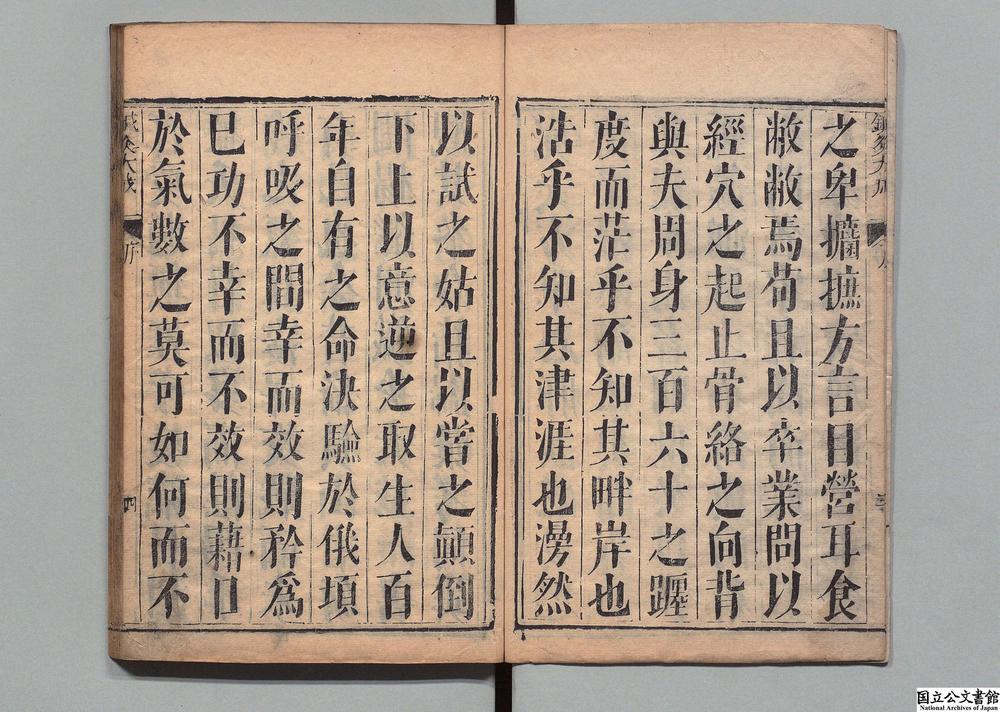 之卑攟摭方言目營耳食
敝敝焉苟且以卒業問以
經穴之起止骨絡之向背
與夫周身三百六十之躔
度而茫乎不知其畔岸也
浩乎不知其津涯也澇然
以試之姑且以嘗之顛倒
下上以意逆之取生人百
年自有之命決驗於俄頃
呼吸之間幸而效則矜為
已功不幸而不效則藉口
於氣數之莫可如何而不
鍼灸大成
序
四
国立公文書館
National Archives of Japan